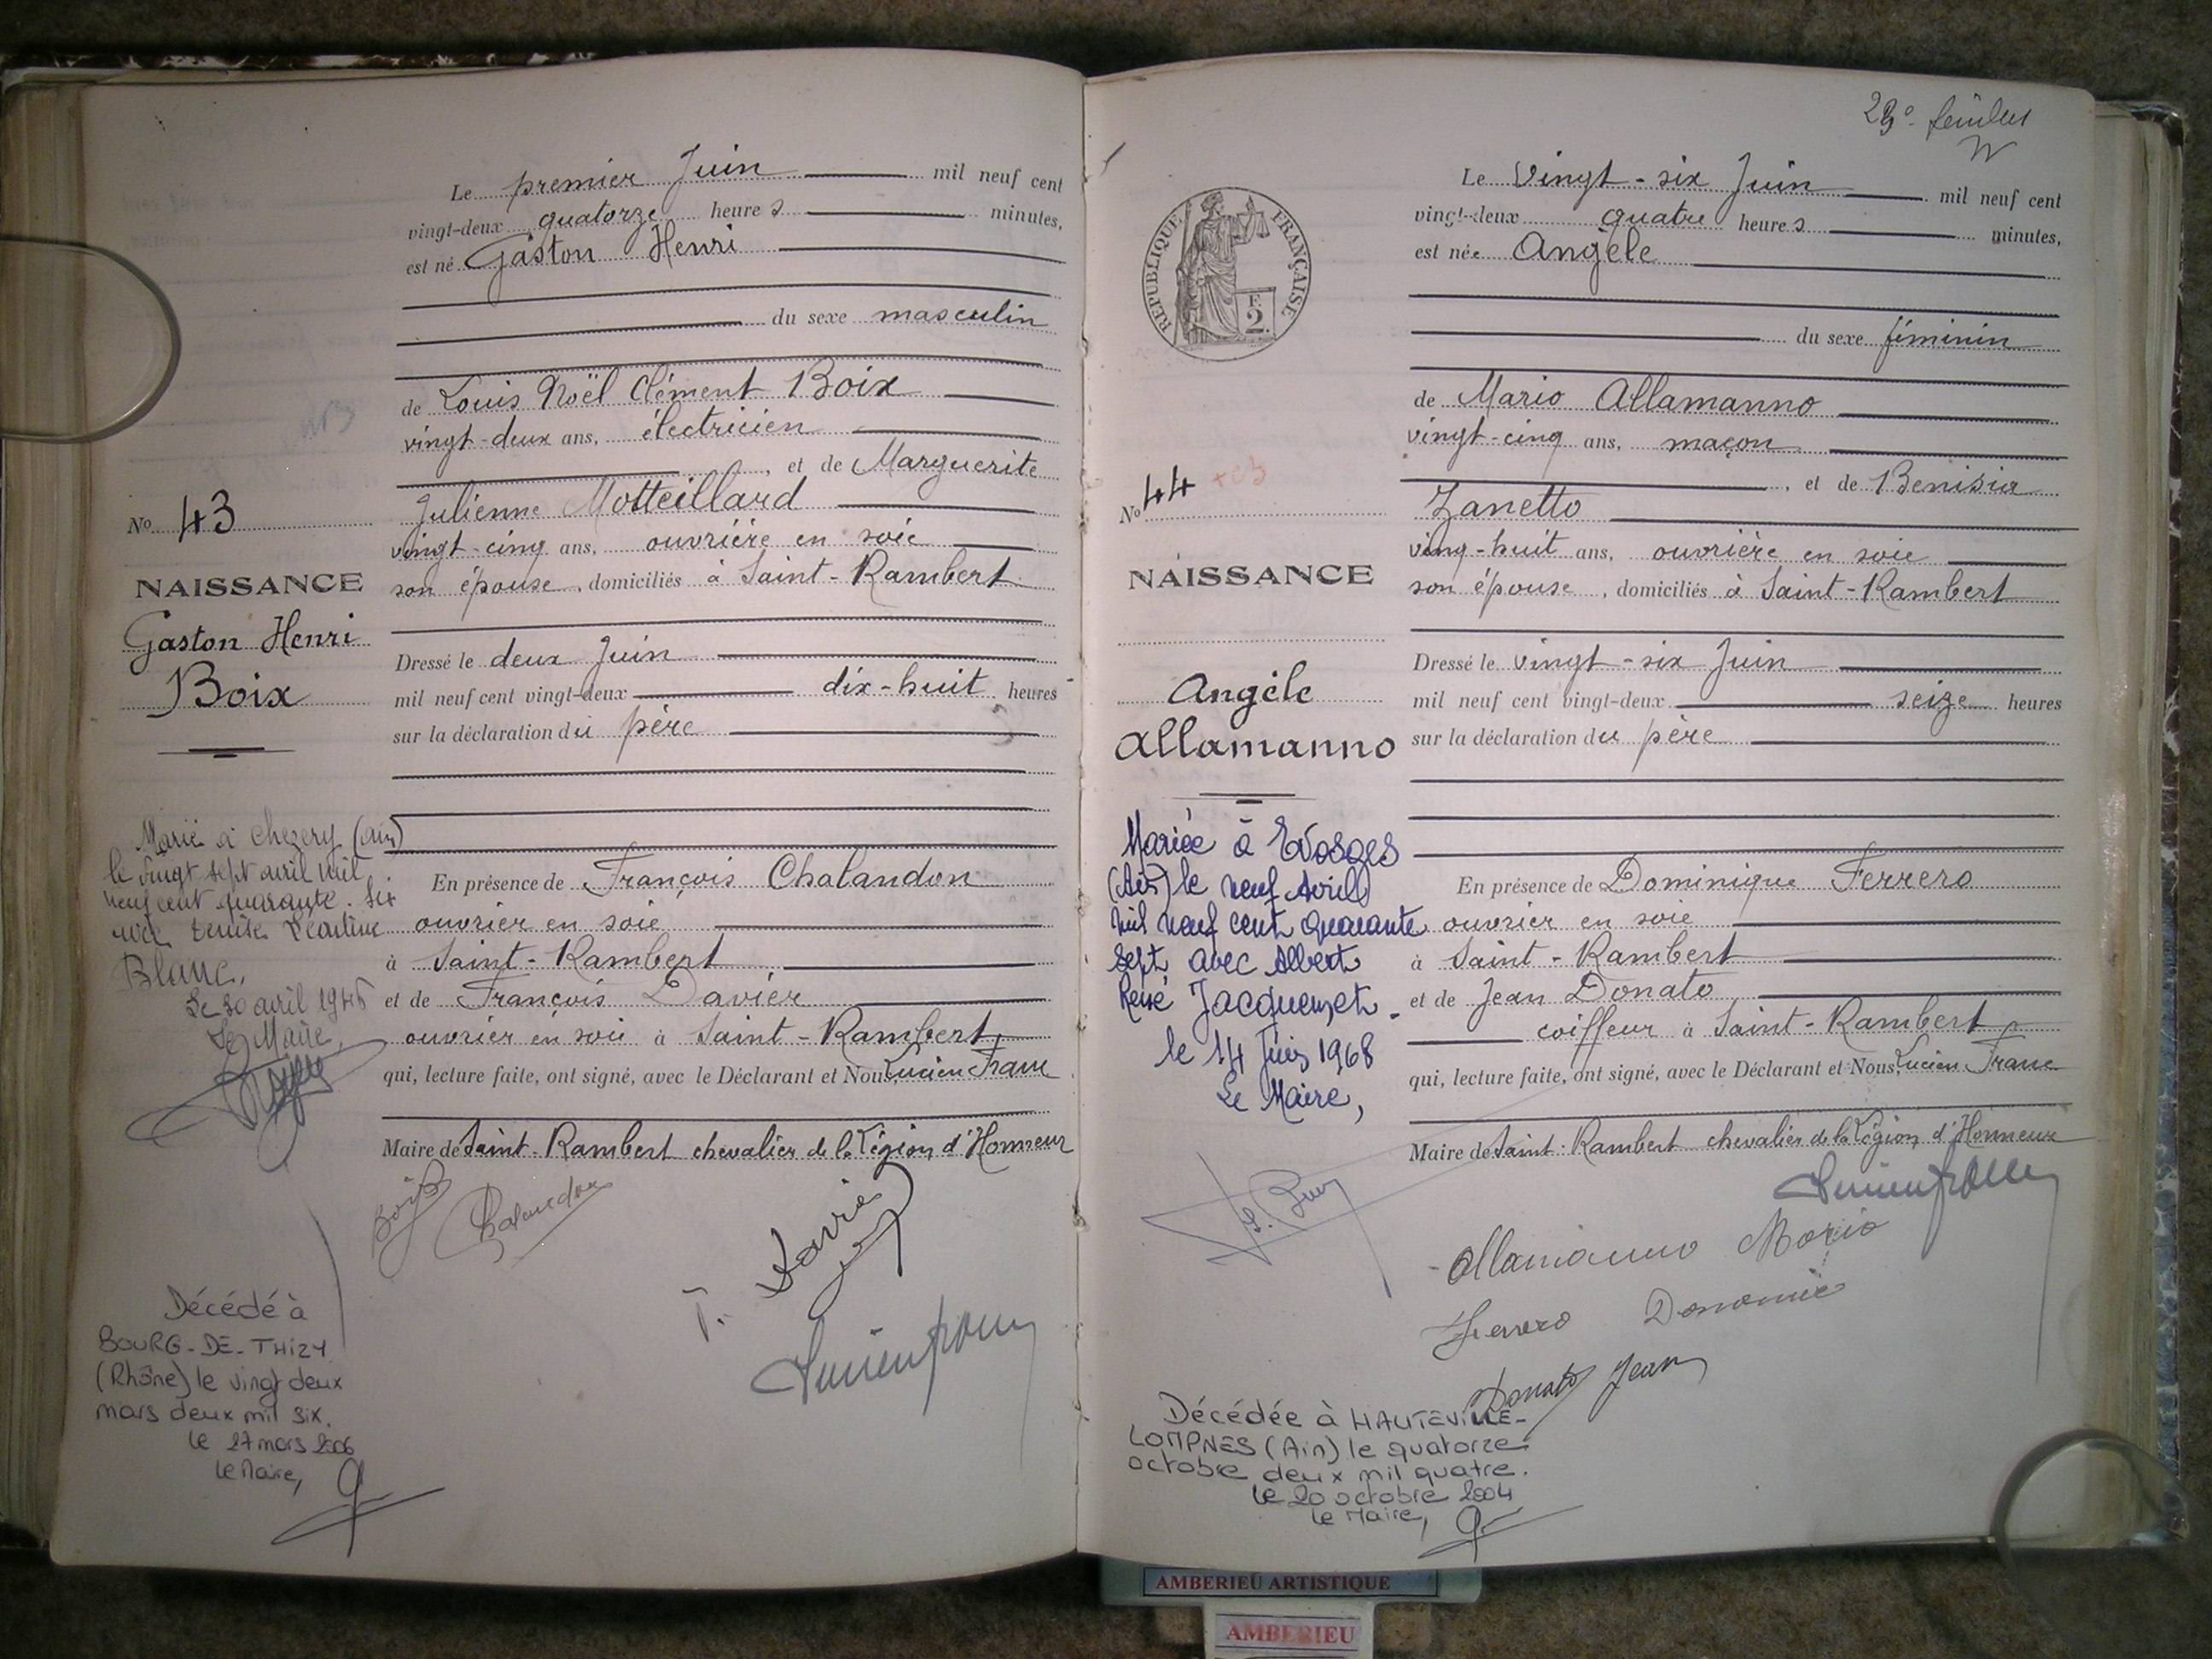 Le premier Juin mil neuf cent
vingt-deux quatorze heures minutes,
est né Gaston Henri
du sexe masculin
de Louis Noël Clément Boix
vingt-deux ans, électricien
, et de Marguerite
Julienne Motteillard
vingt-cinq ans, ouvrière en soie
son épouse, domiciliés à Saint-Rambert
Dressé le deux Juin
mil neuf cent vingt-deux dix-huit heures
sur la déclaration du père
En présence de François Chalandon
ouvrier en soie
à Saint-Rambert
et de François Davier
ouvrier en soie à Saint-Rambert
qui, lecture faite, ont signé, avec le Déclarant et Nous Lucien Franc
Maire de Saint-Rambert chevalier de la Légion d'Honneur
Boix
Chalandon
F. Davier
No 43
NAISSANCE
Gaston Henri
Boix
Marié à Chezery (Ain)
le vingt sept avril mil
neuf cent quarante-six
avec
Blanc.
Le 30 avril 1946
Le Maire,
Décédé à
BOURG-DE-THIZY
(Rhône) le vingt deux
mars deux mil six.
le 27 mars 2006
Le Maire,
23e feuillet
REPUBLIQUE FRANÇAISE
F.
2.
Le vingt-six Juin mil neuf cent
vingt-deux quatre heures minutes,
est née Angèle
du sexe féminin
de Mario Allamanno
vingt-cinq ans, maçon
, et de Benisia
Zanetto
ving-huit ans, ouvrière en soie
son épouse, domiciliés à Saint-Rambert
Dressé le vingt-six Juin
mil neuf cent vingt-deux seize heures
sur la déclaration du père
En présence de Dominique Ferrero
ouvrier en soie
à Saint-Rambert
et de Jean Donato
coiffeur à Saint-Rambert
qui, lecture faite, ont signé, avec le Déclarant et Nous, Lucien Franc
Maire de Saint-Rambert chevalier de la Légion d'Honneur
Allamanno Mario
Ferrero
Donato Jean
No 44
NAISSANCE
Angèle
Allamanno
Mariée à Evosges
(Ain) le neuf Avril
mil neuf cent quarante
sept avec Albert
René Jacquemet.
le 14 Juin 1968
Le Maire,
Décédée à HAUTEVILLE-
LOMPNES (Ain) le quatorze
octobre deux mil quatre.
le 20 octobre 2004
le Maire,
AMBERIEU ARTISTIQUE
AMBERIEU